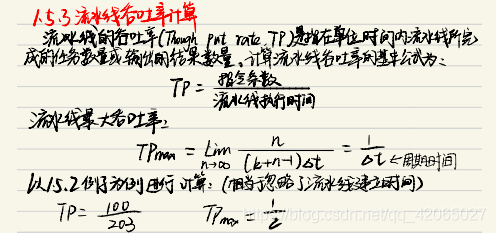 1.5.3 流水线吞吐率计算
流水线的吞吐率(Though put rate TP)是指在单位时间内流水线所完
成的任务数量或输出的结果数量。计算流水线吞吐率的基本公式为：
TP = 指令条数 / 流水线执行时间
流水线最大吞吐率：
TPmax = lim n→∞ n / (k+n-1)Δt = 1 / Δt ← 周期时间
以1.5.2例子为例进行计算：(相当于忽略了流水线建立时间)
TP = 100 / 203 TPmax = 1 / 2
https://blog.csdn.net/qq_42065027